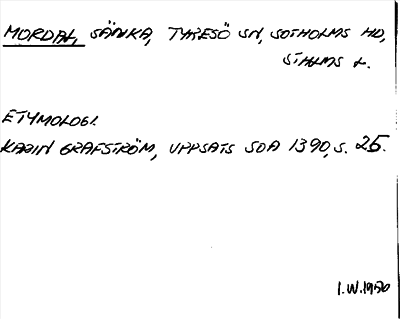 MORDAL, SÄNKA, TYRESÖ SN, SOTHOLMS HD,
STHLMS L.
ETYMOLOGI.
KARIN GRAFSTRÖM, UPPSATS SOA 1390, S. 25.
I.W. 1980